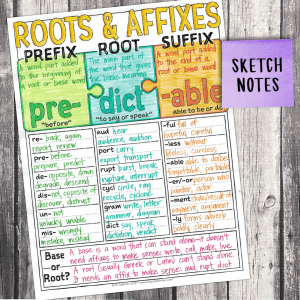 ROOTS & AFFIXES
PREFIX ROOT SUFFIX
A word part added
to the beginning of
a root or base word
The main part of
the word that gives
the basic meaning
A word part added
to the end of a
root or base word
pre- dict -able
"before"
"to say or speak"
able to be or do
SKETCH
NOTES
re- back, again
report, review
pre- before
prepare, predict
de- opposite, down
degrade, descend
dis- not, opposite of
discover, distrust
un- not
unlucky, unable
mis- wrongly
mistake, instead
aud hear
audience, audition
port carry
export, transport
rupt burst, break
rupture, interrupt
cycl circle, ring
recycle, cyclone
gram write, letter
grammar, diagram
dict speak
-ful full of
hopeful, careful
-less without
-able able to do/be
-er/-or person who
painter, actor
-ment
payment, argument
-ly forms adverb
badly, clearly
Base
or
Root?
A base is a word that can stand alone-it doesn't
need affixes to make sense: write, call, make, live
A root (usually Greek or Latin) can't stand alone.
It needs an affix to make sense: aud, rupt, dict